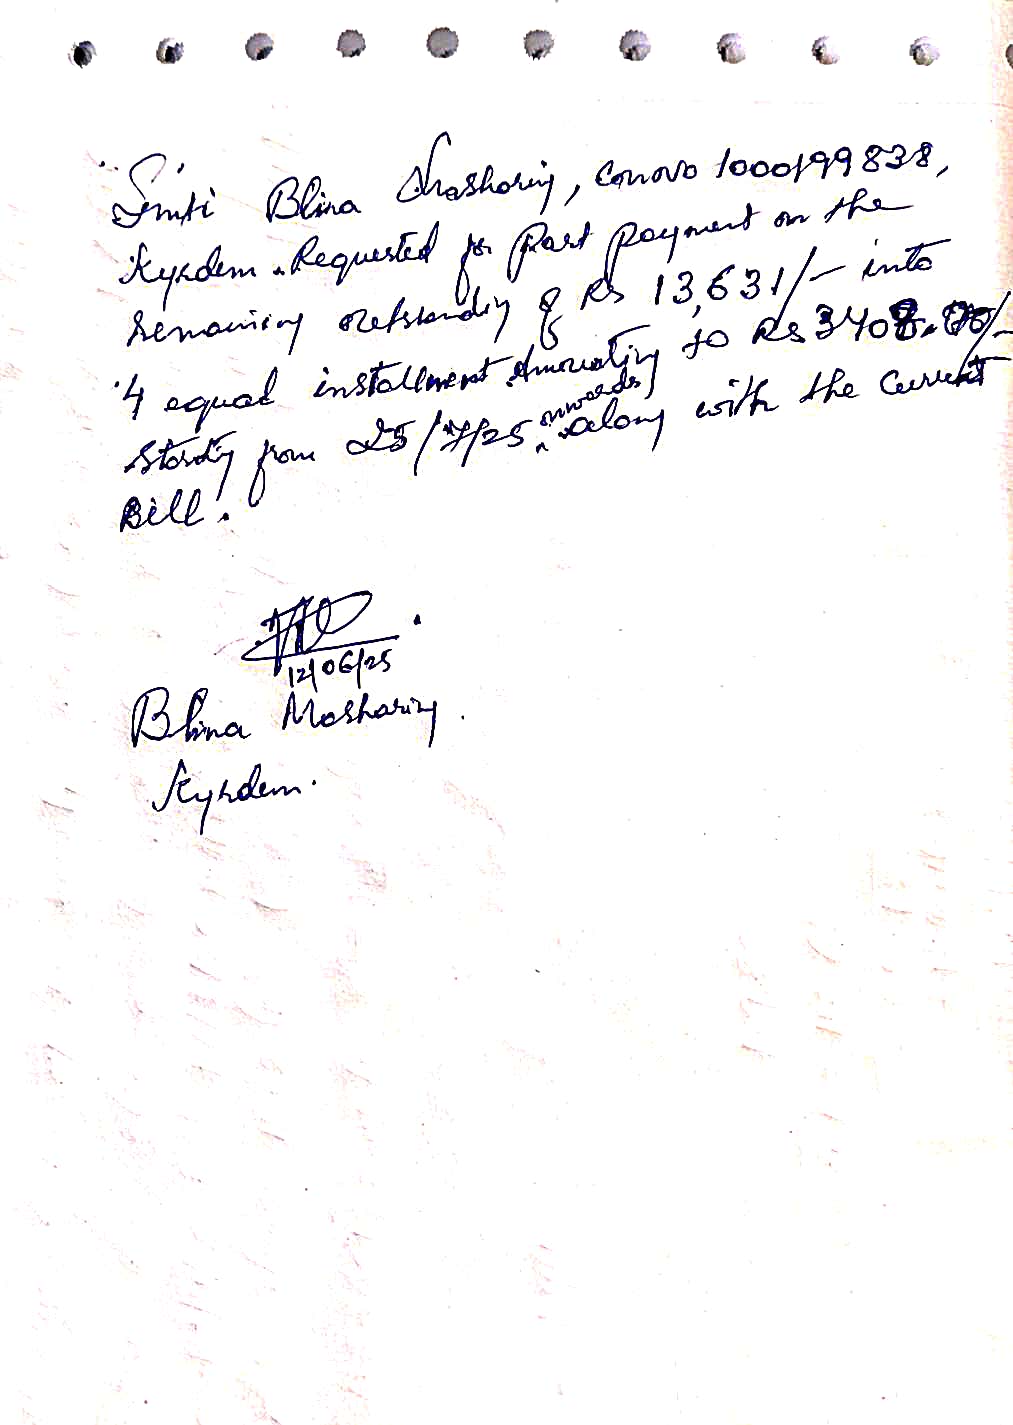 Smti Blina Masharing, Con no 1000199838,
Kyrdem. Requested for part payment on the
remaining outstanding of Rs 13,631/- into
4 equal installment Amounting to Rs 3408.00/-
starting from 25/7/25 onwards along with the current
Bill.
12/06/25
Blina Masharing.
Kyrdem.